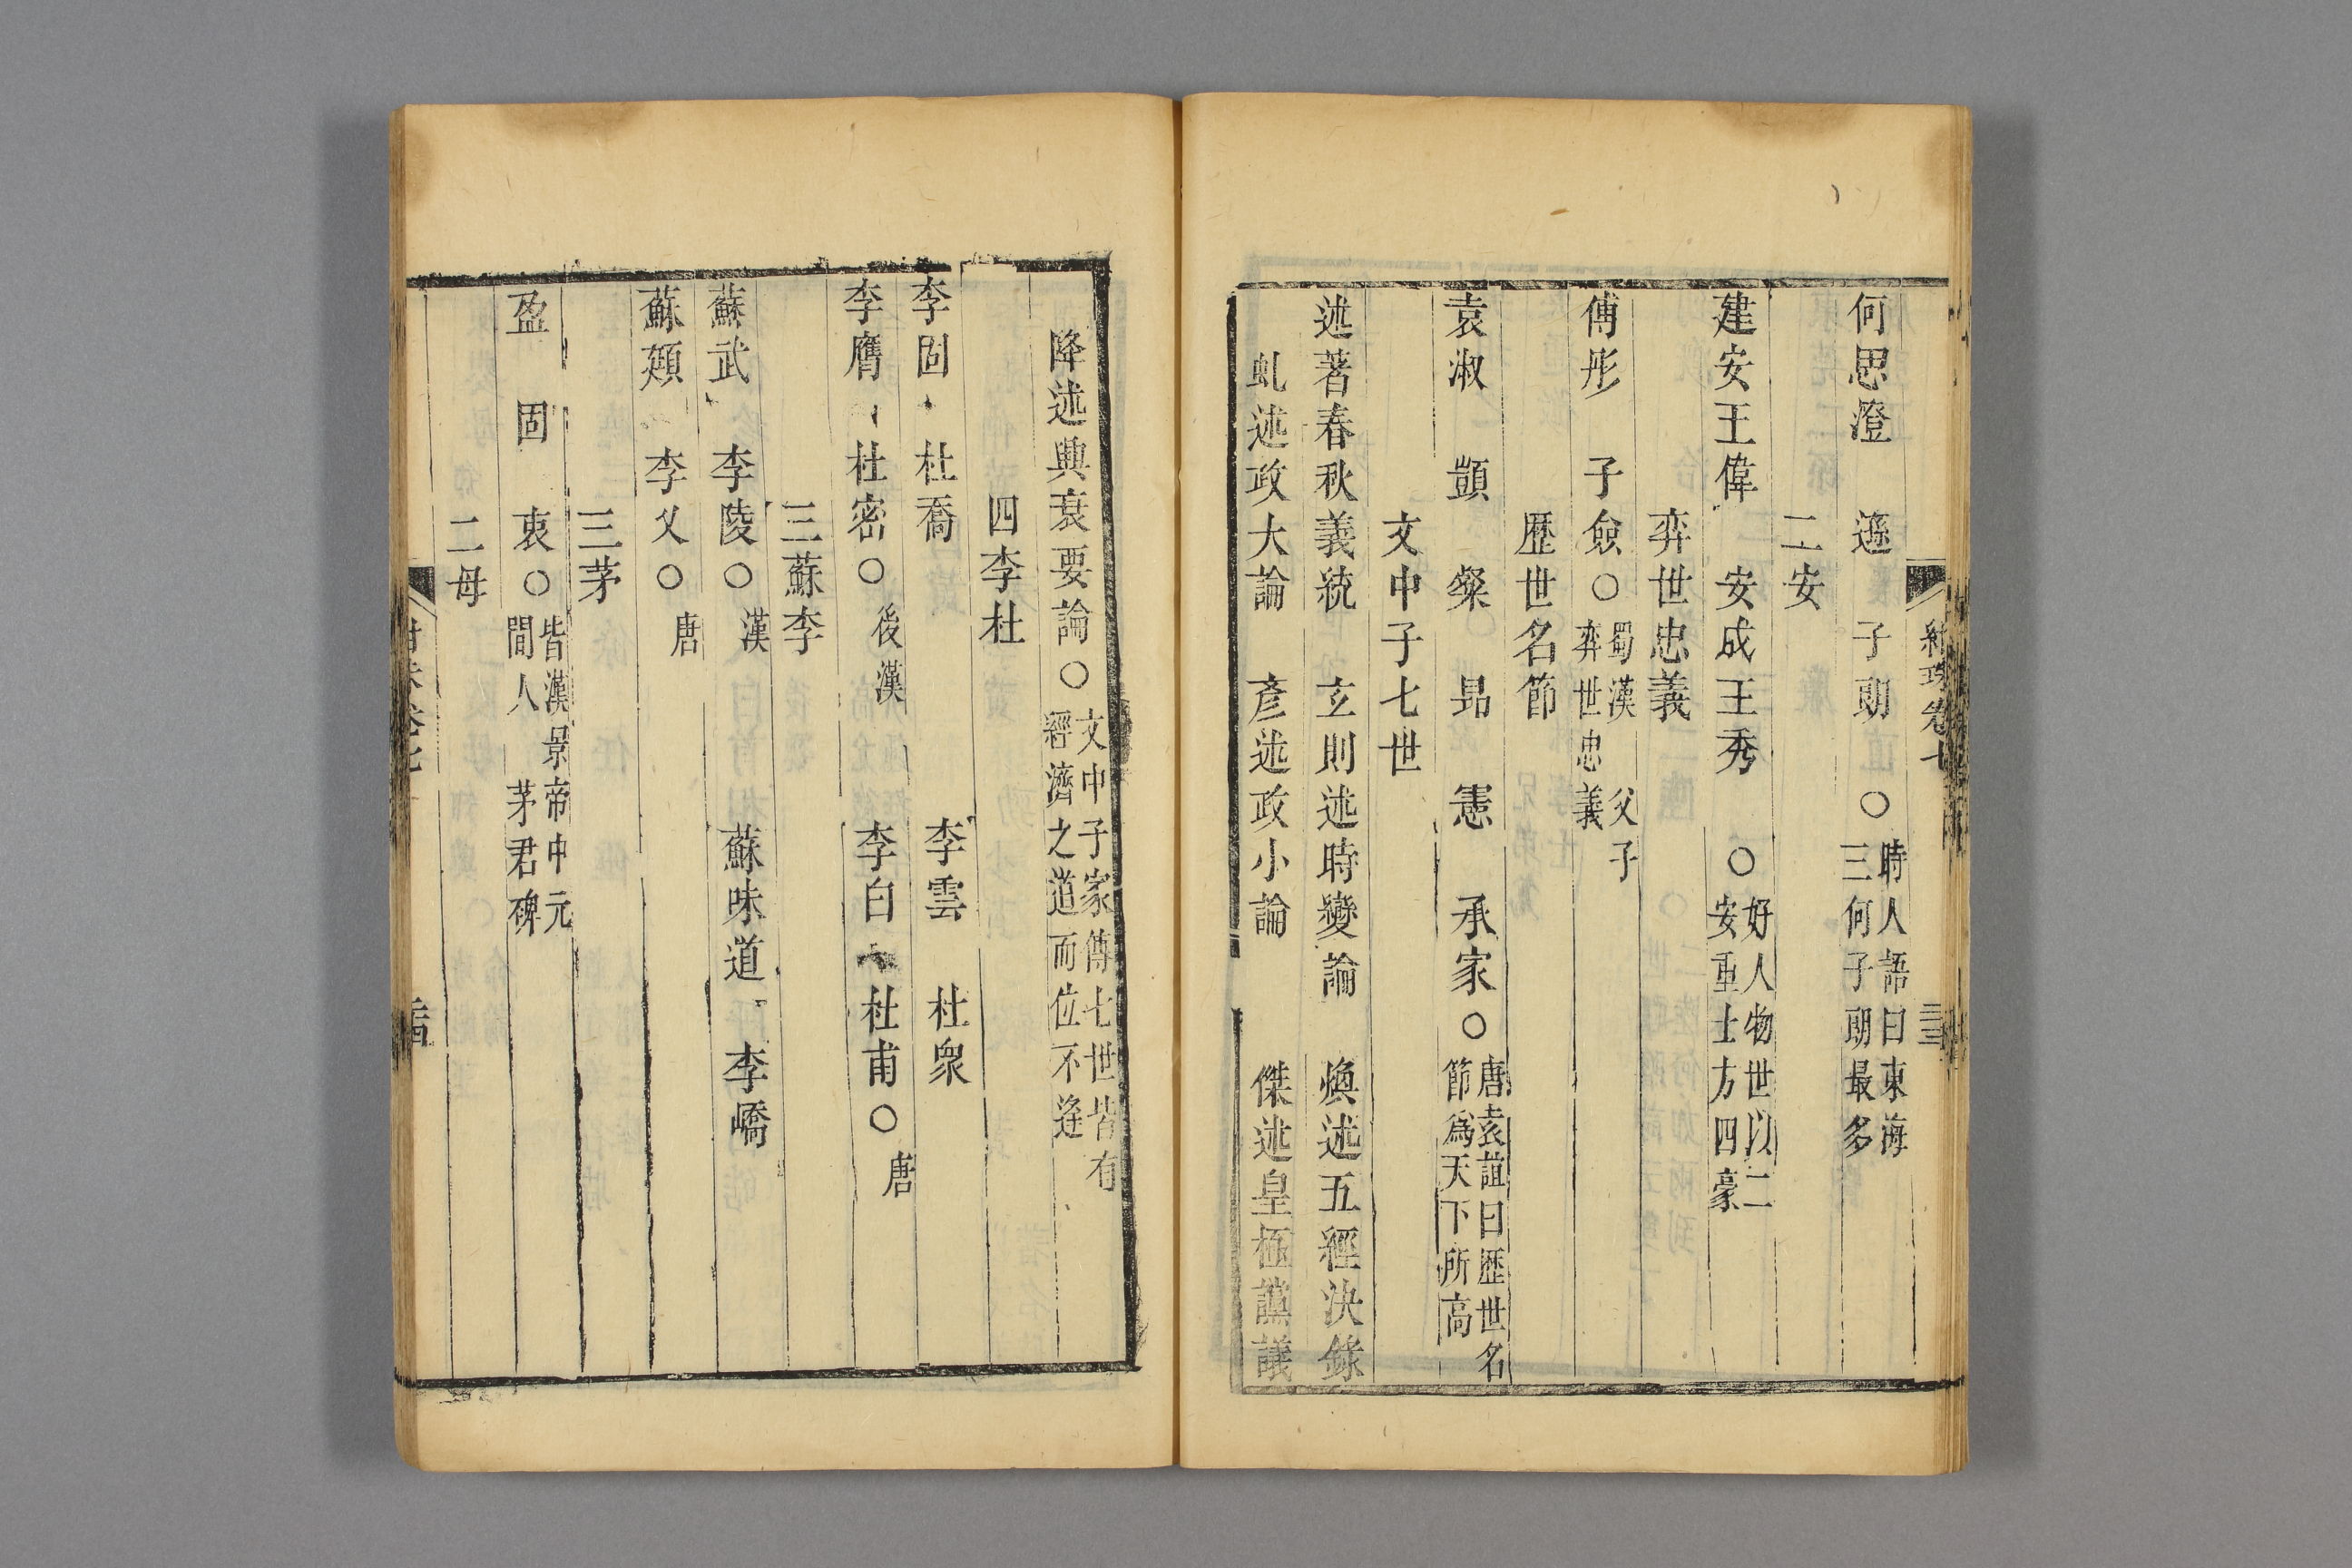 紺珠卷七
三十三
何思澄　遜　子朗　○時人語曰東海三何子朗最多
二安
建安王偉　安成王秀　○好人物世以二安重士方四豪
弈世忠義
傅彤　子僉○蜀漢　父子弈世忠義
歷世名節
袁淑　顗　粲　昂　憲　承家○唐袁誼曰歷世名節爲天下所高
文中子七世
述著春秋義統　玄則述時變論　煥述五經決錄
虬述政大論　彥述政小論　傑述皇極讜議
隆述興衰要論○文中子家傳七世皆有經濟之道而位不逢
四李杜
李固　杜喬　李雲　杜衆
李膺　杜密○後漢　李白　杜甫○唐
三蘇李
蘇武　李陵○漢　蘇味道　李嶠
蘇頲　李乂○唐
三茅
盈　固　衷○皆漢景帝中元間人　茅君碑
二母